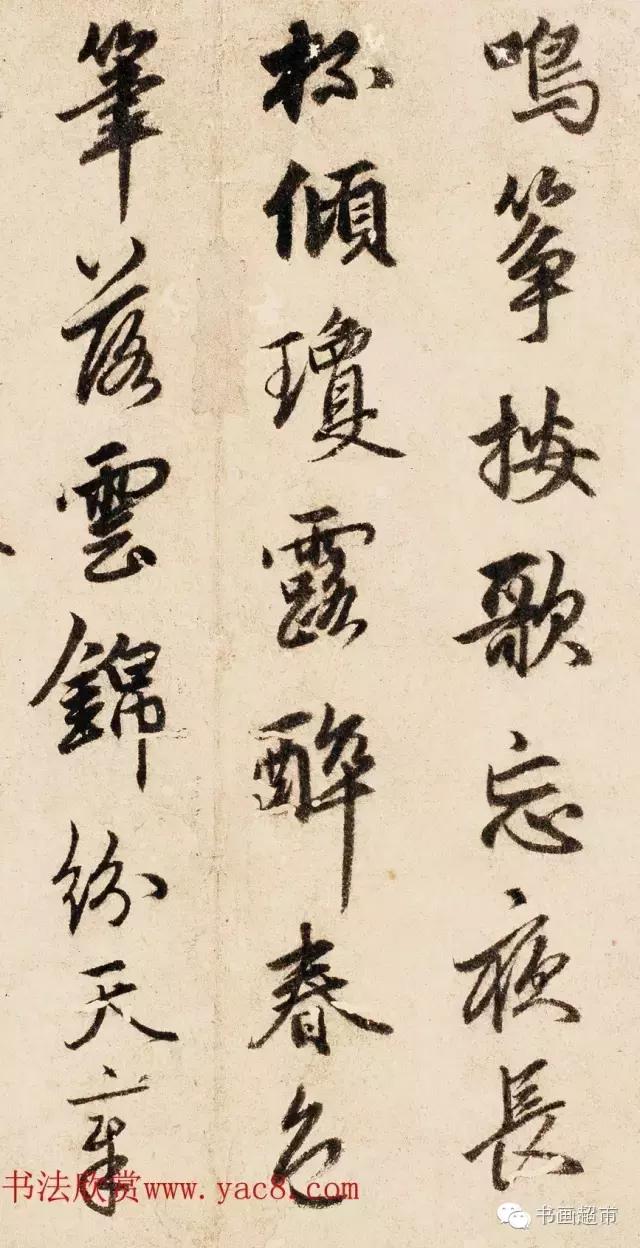 鳴筝按歌忘夜長
杯傾瓊露醉春色
筆落雲錦紛天章
书法欣赏www.yac8.com
书画超市